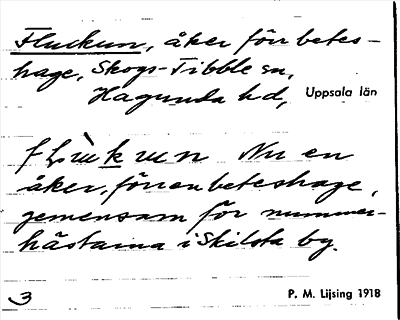 Fluckun, åker förr betes-
hage, Skogs-Tibble sn,
Hagunda hd, Uppsala län
Nu en
åker, förr en beteshage,
gemensam för nummer-
hästarna i Skilsta by.
3
P. M. Lijsing 1918